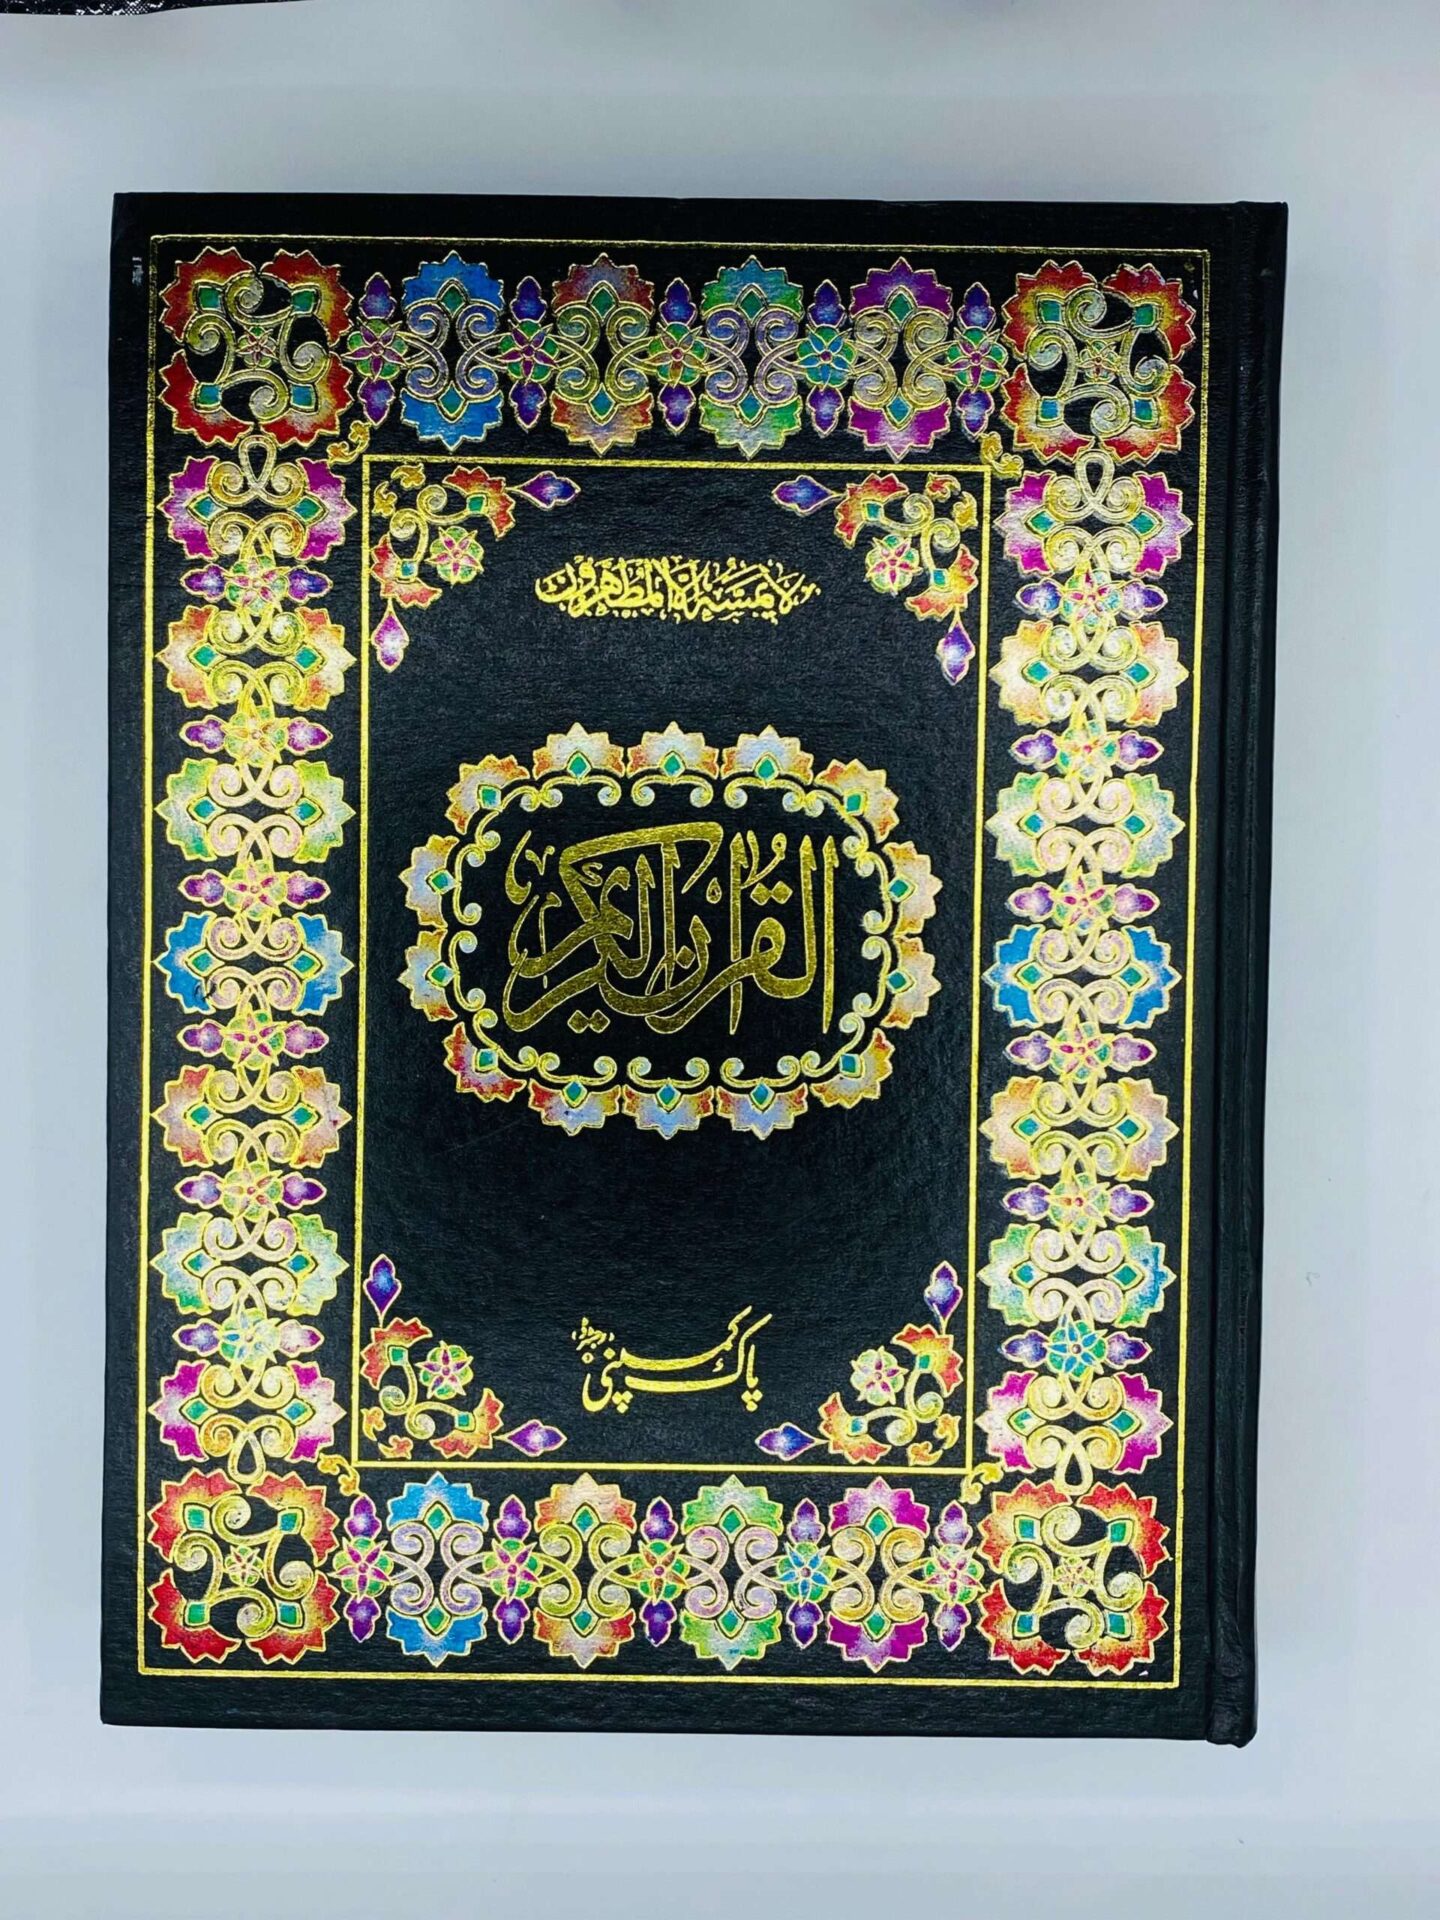 لا يمسه الا المطهرون
القرآن الكريم
پاک کمپنی (رجسٹرڈ)